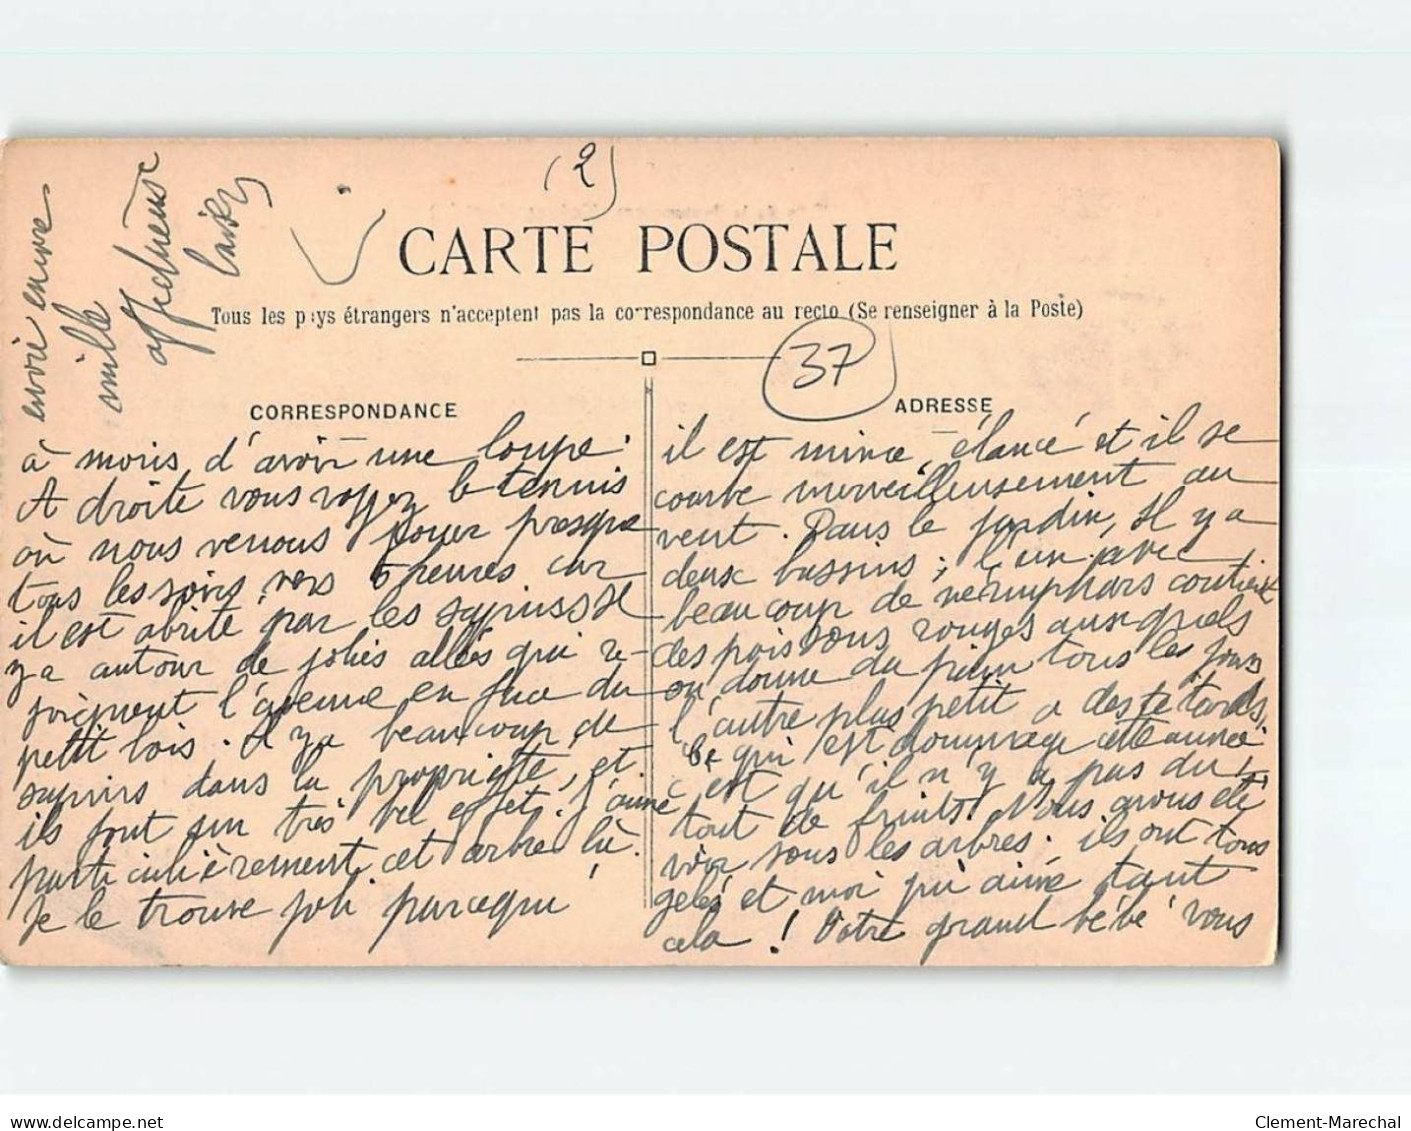 (2)
CARTE POSTALE
Tous les pays étrangers n'acceptent pas la correspondance au recto (Se renseigner à la Poste)
37
CORRESPONDANCE
à moins, d'avoir une loupe.
A droite vous voyez le tennis
où nous venons jouer presque
tous les soirs vers 5 heures car
il est abrité par les sapins Il
y a autour de jolies allées qui re-
joignent l'avenue en face du
petit bois. Il y a beaucoup de
sapins dans la propriété, et
ils font un très bel effet. J'aime
particulièrement cet arbre là.
Je le trouve joli parcequ'
ADRESSE
il est mince, élancé et il se
courbe merveilleusement au
vent. Dans le jardin, il y a
deux bassins ; l'un avec
beaucoup de nemuphars contient
des poissons rouges auxquels
on donne du pain tous les jours
l'autre plus petit a des tétards,
Ce qui est dommage cette année
c'est qu'il n'y a pas du
tout de fruits. Nous avons été
voir sous les arbres. ils ont tous
gelés et moi qui aime tant
cela ! Votre grand bébé vous
envoie encore
mille
affectueux
baisers
à
www.delcampe.net
Clement-Marechal